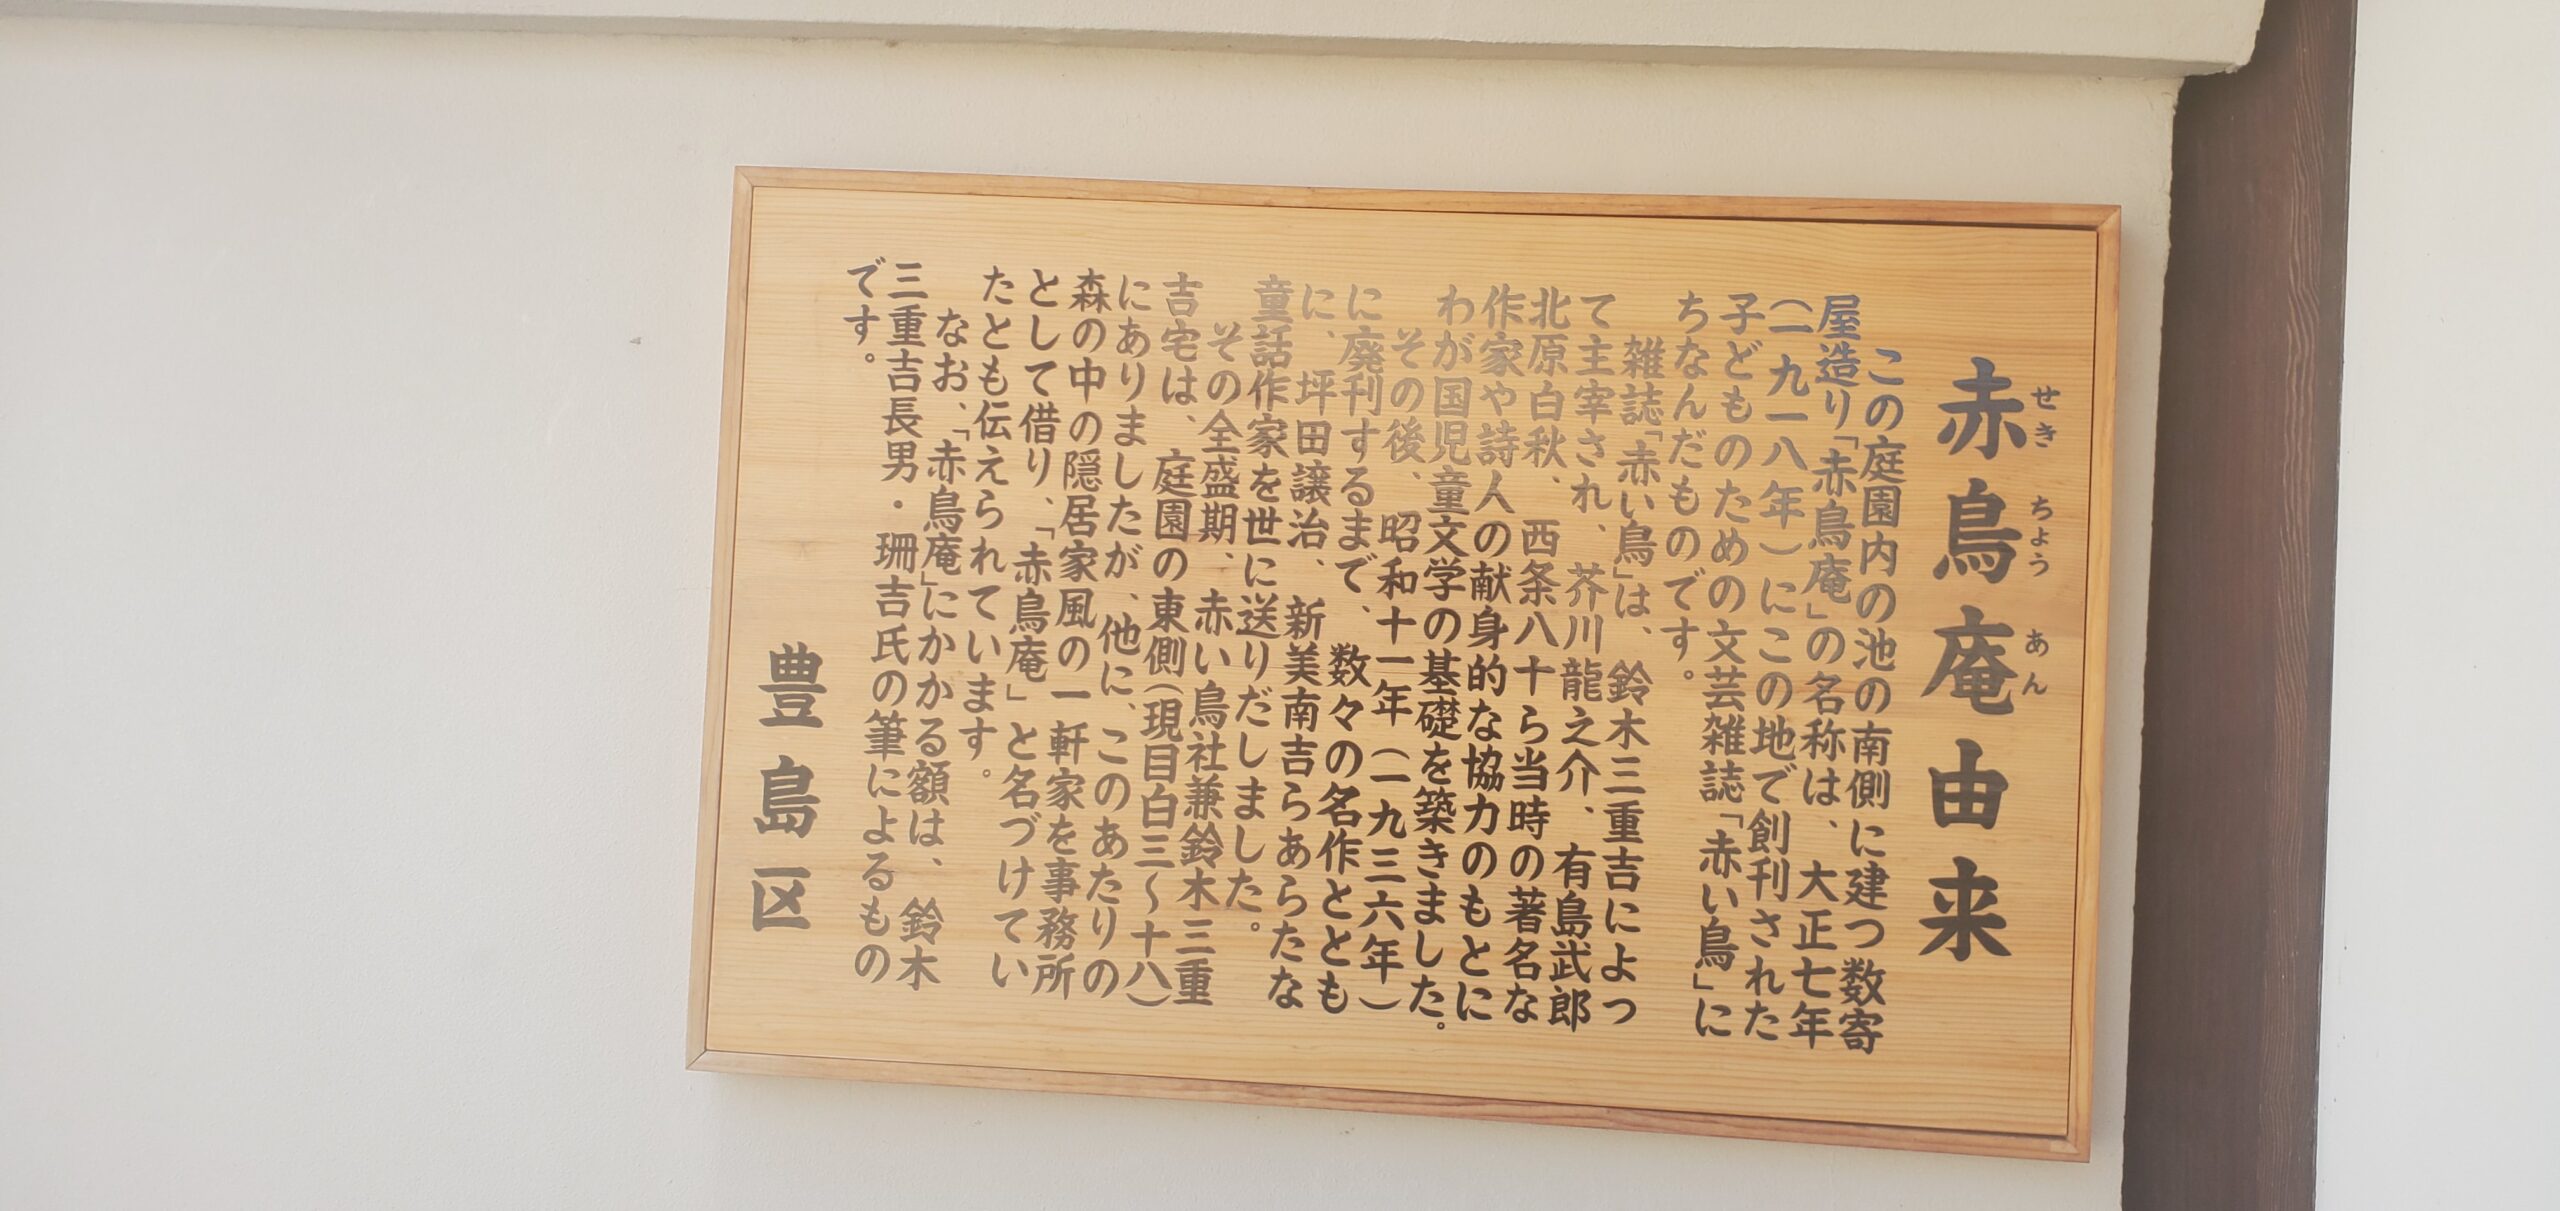 赤鳥庵由来
せきちょうあん
　この庭園内の池の南側に建つ数寄
屋造り「赤鳥庵」の名称は、大正七年
（一九一八年）にこの地で創刊された
子どものための文芸雑誌「赤い鳥」に
ちなんだものです。
　雑誌「赤い鳥」は、鈴木三重吉によっ
て主宰され、芥川龍之介、有島武郎
北原白秋、西条八十ら当時の著名な
作家や詩人の献身的な協力のもとに
わが国児童文学の基礎を築きました。
　その後、昭和十一年（一九三六年）
に廃刊するまで、数々の名作ととも
に、坪田譲治、新美南吉らあらたな
童話作家を世に送りだしました。
　その全盛期、赤い鳥社兼鈴木三重
吉宅は、庭園の東側（現目白三～十八）
にありましたが、他に、このあたりの
森の中の隠居家風の一軒家を事務所
として借り、「赤鳥庵」と名づけてい
たとも伝えられています。
　なお、「赤鳥庵」にかかる額は、鈴木
三重吉長男・珊吉氏の筆によるもの
です。
豊島区